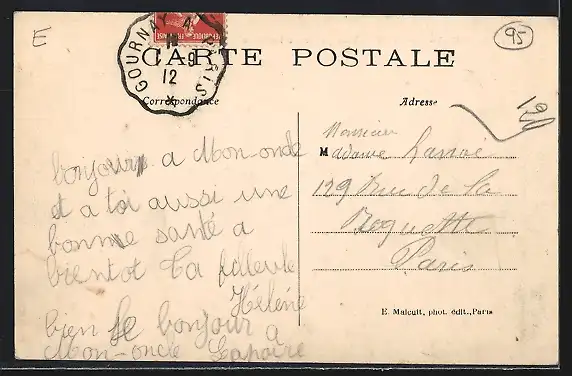 E
95
GOURNAY A PARIS
9
12
CARTE POSTALE
Correspondance
Adresse
bonjour a Mon-oncle
et a toi aussi une
bonne santé a
bientot Ta filleule
Hélène
bien le bonjour a
Mon-oncle Lapoire
Monsieur
Madame
129 Rue de la
Roquette
Paris
E. Malcuit, phot. édit., Paris